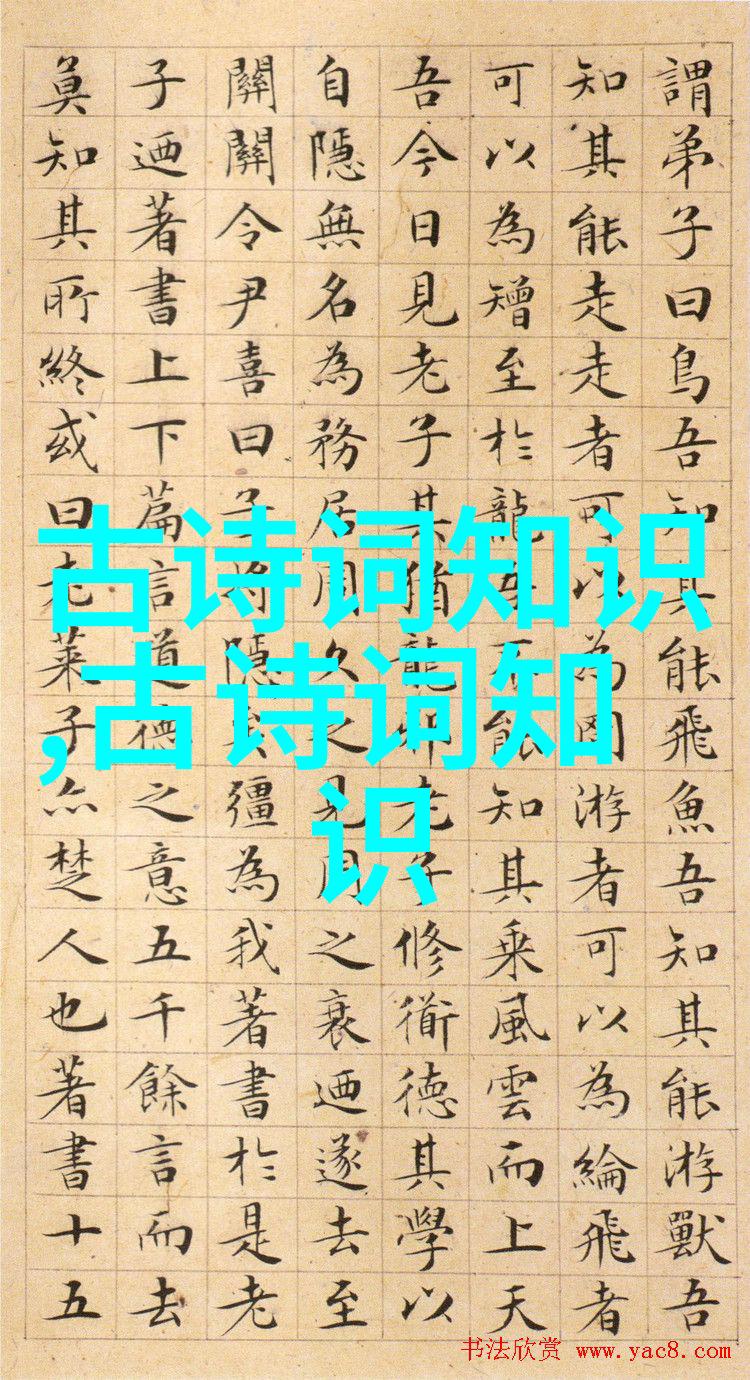 謂弟子曰鳥吾知其能飛魚吾知其能游獸吾
知其能走走者可以為罔游者可以為綸飛者
可以為矰至於龍吾不能知其乘風雲而上天
吾今日見老子其猶龍邪老子修衟德其學以
自隱無名為務居周久之見周之衰迺遂去至
關關令尹喜曰子將隱矣彊為我著書於是老
子迺著書上下篇言道德之意五千餘言而去
莫知其所終或曰老萊子亦楚人也著書十五
古诗词知识
,古诗词知
识
书法欣赏 www.yac8.com